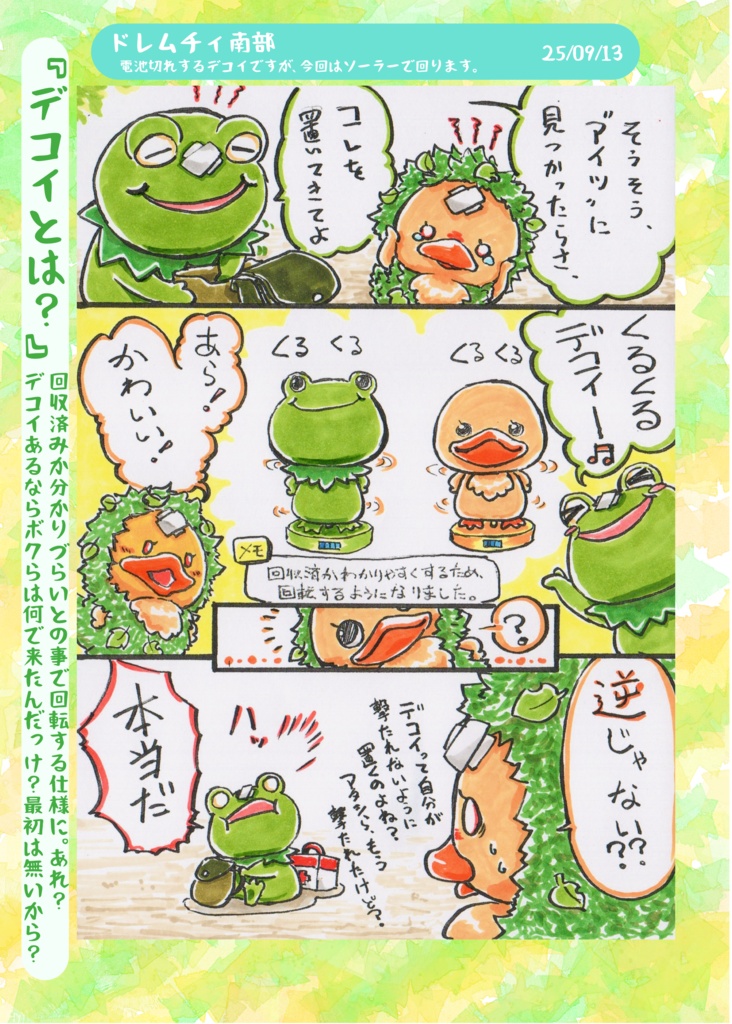 ドレムチィ南部
電池切れするデコイですが、今回はソーラーで回ります。
25/09/13
『デコイとは?』
回収済みか分かりづらいとの事で回転する仕様に。あれ?
デコイあるならボクらは何で来たんだっけ?最初は無いから?
そうそう、
"アイツ"に
見つかったらさ、
コレを
置いてきてよ
くるくる
デコイー♫
くる くる
くる くる
あら!
かわいい!
メモ
回収済かわかりやすくするため、
回転するようになりました。
?
逆じゃない??
デコイって自分が
撃たれないように
置くのよね?
アタシら、もう
撃たれたけど?
ハッ
本当だ